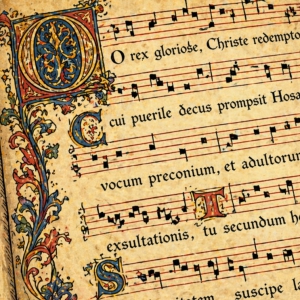 O
O rex gloriose, Christe redempto
C
cui puerile decus prompsit Hosa
vocum preconium, et adultorum
T
exsultationis, tu secundum h
S
suscipe la